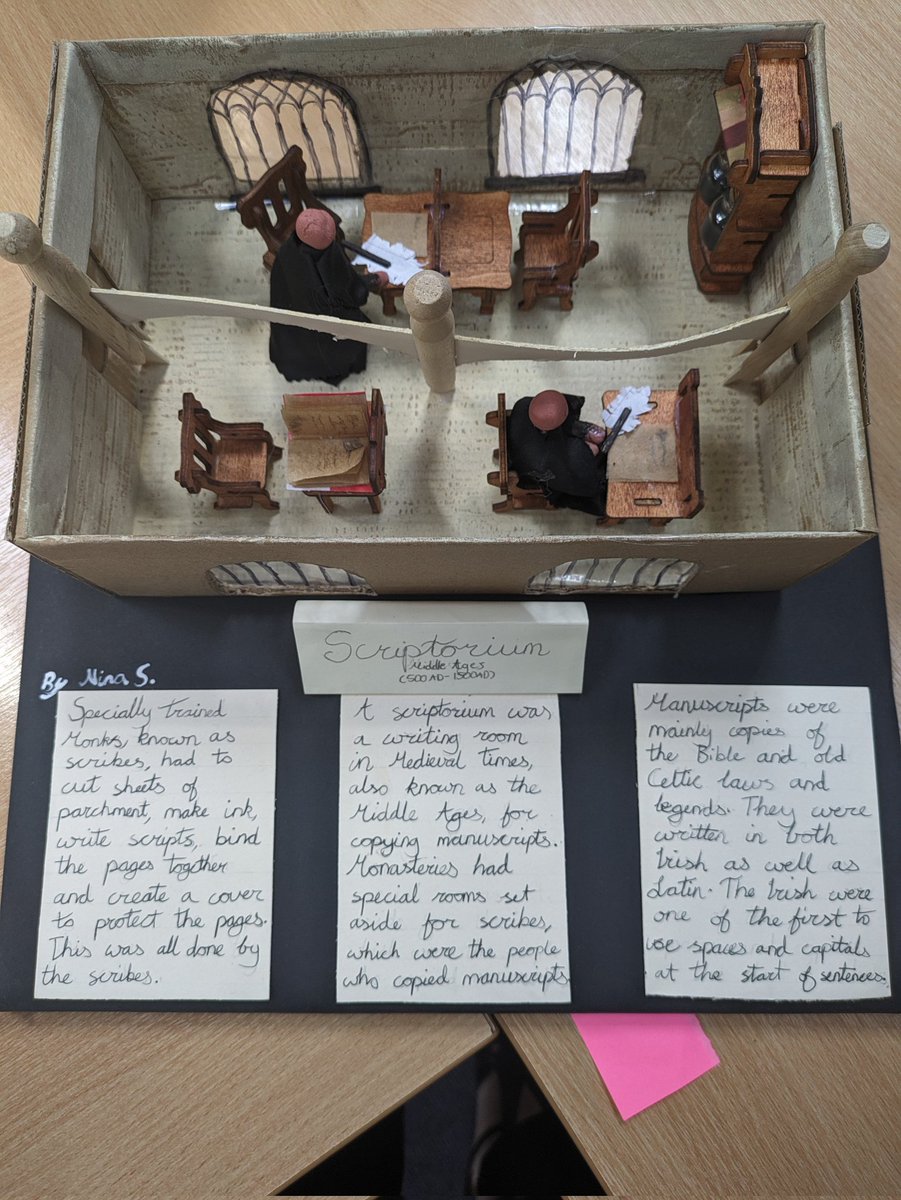 Scriptorium
Middle Ages
(500AD-1500AD)
By Nina S.
Specially Trained
Monks, known as
scribes, had to
cut sheets of
parchment, make ink,
write scripts, bind
the pages together
and create a cover
to protect the pages.
This was all done by
the scribes.
A scriptorium was
a writing room
in Medieval times,
also known as the
Middle Ages, for
copying manuscripts.
Monasteries had
special rooms set
aside for scribes,
which were the people
who copied manuscripts
Manuscripts were
mainly copies of
the Bible and old
Celtic laws and
legends. They were
written in both
Irish as well as
Latin. The Irish were
one of the first to
use spaces and capitals
at the start of sentences.